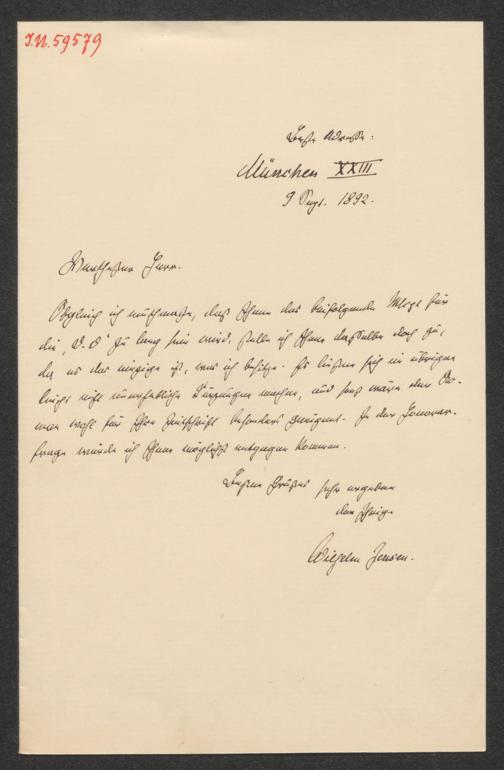 I.N. 59579
Beste Adresse:
München XXIII
9 Sept. 1892.
Werthester Herr.
Obgleich ich muthmaße, daß Ihnen das beifolgende für
die zu lang sein wird, stelle ich Ihnen dasselbe doch zu,
da es das einzige ist, was ich besitze. Es ließen sich im übrigen
leicht nicht Kürzungen machen, und sonst wäre der Ro-
man wohl für Ihre Zeitschrift besonders geeignet. In der Honorar-
frage würde ich Ihnen möglichst entgegen kommen.
Besten Grußes sehr ergeben
der Ihrige
Wilhelm Jensen.